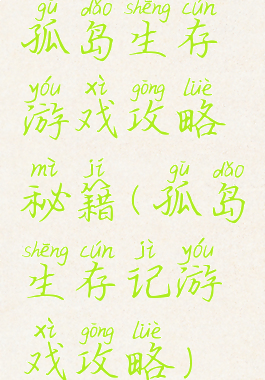 gū dǎo shēng cún
孤岛生存
yóu xì gōng lüè
游戏攻略
mì jí gū dǎo
秘籍(孤岛
shēng cún jì yóu
生存记游
xì gōng lüè
戏攻略)